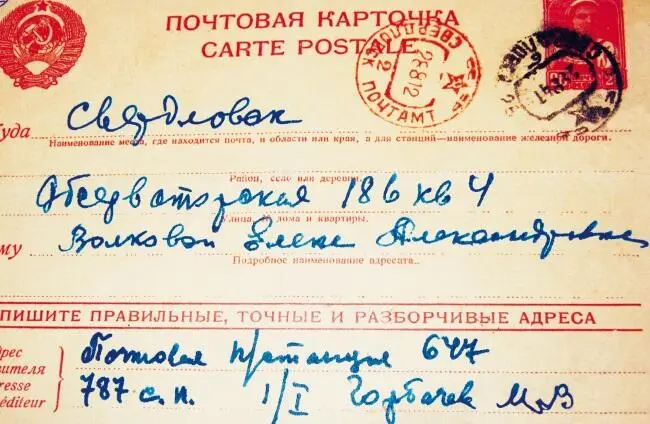 ПОЧТОВАЯ КАРТОЧКА
CARTE POSTALE
СВЕРДЛОВСК
ПОЧТАМТ
Свердловск
уда
Наименование места, где находится почта, и области или края, а для станций—наименование железной дороги.
Район, село или деревня.
Обсерваторская 186 кв 4
Улица, № дома и квартиры.
му
Волковой Елене Александровне
Подробное наименование адресата.
ПИШИТЕ ПРАВИЛЬНЫЕ, ТОЧНЫЕ И РАЗБОРЧИВЫЕ АДРЕСА
рес
вителя
resse
éditeur
Почтовая 647
787 с.п. 1/I Горбачек М.В